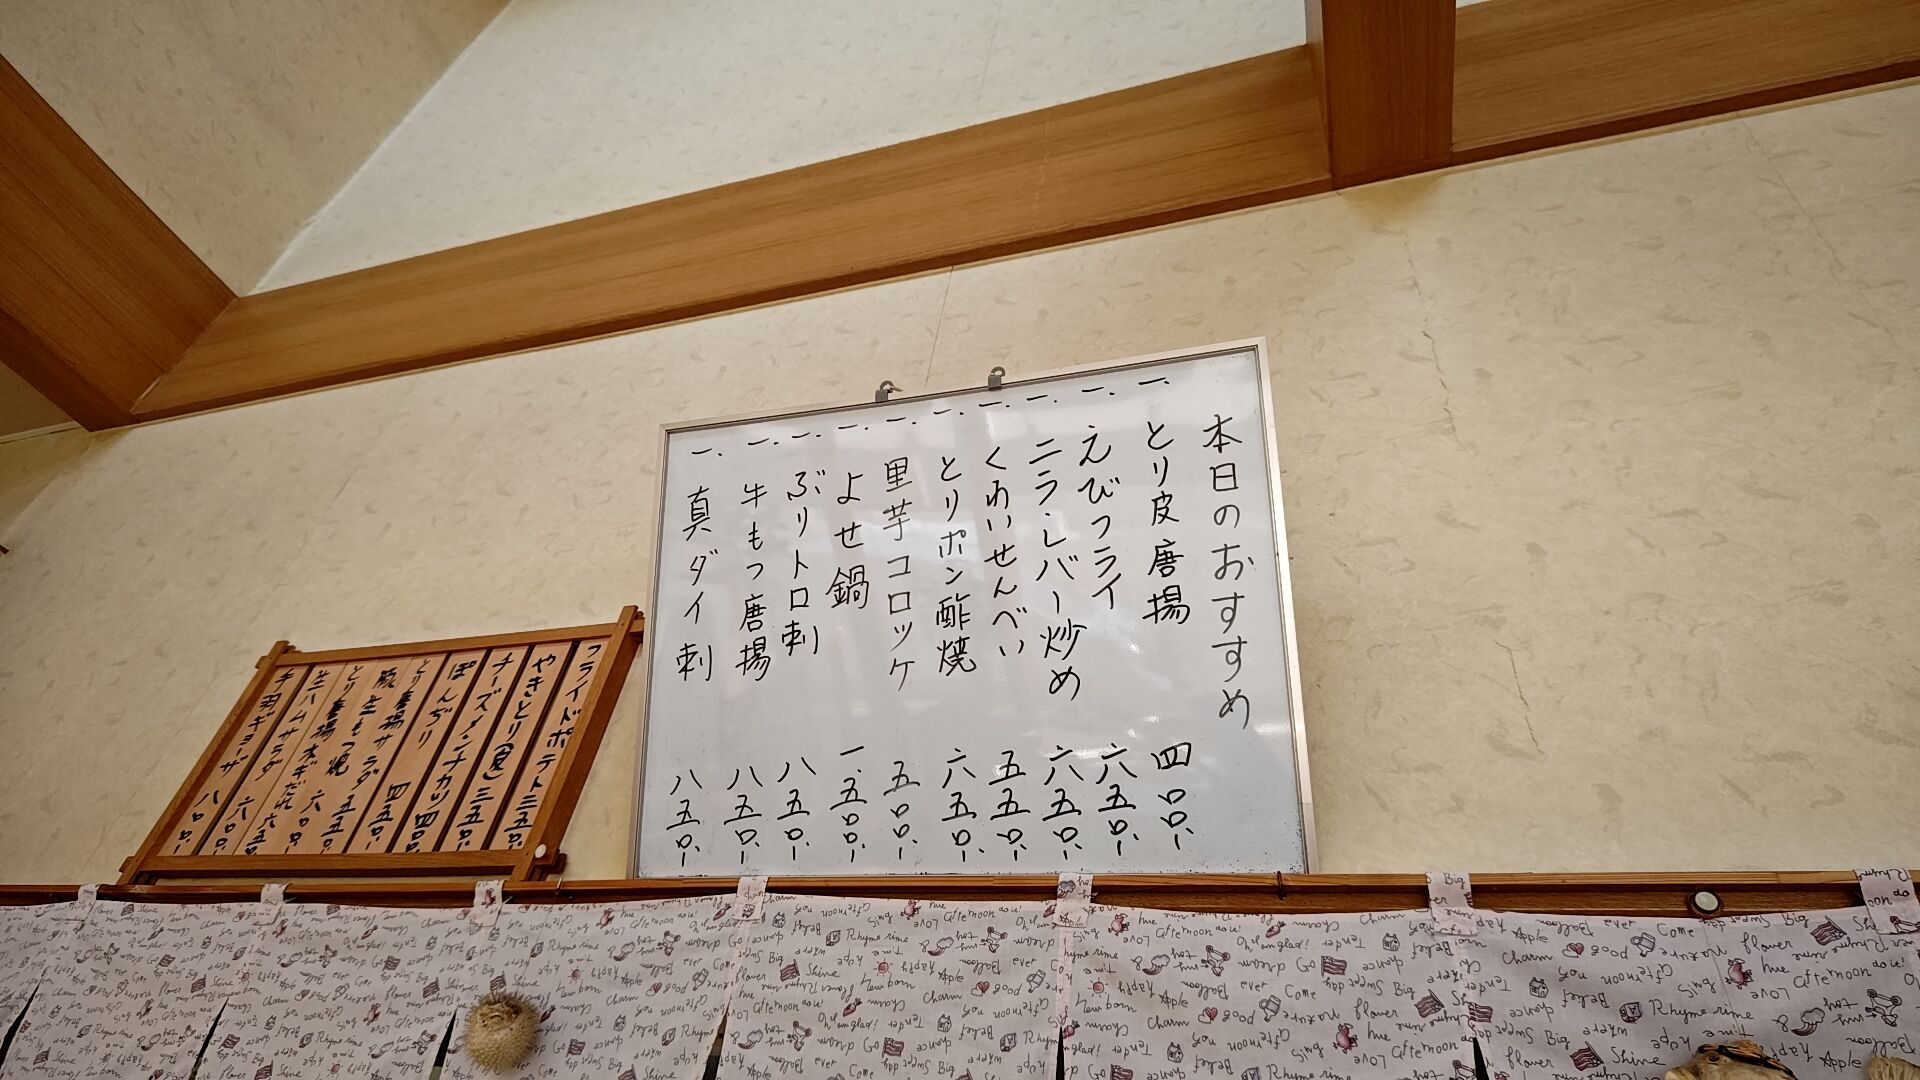 本日のおすすめ
一. とり皮唐揚 四〇〇.-
一. えびフライ 六五〇.-
一. ニラ・レバー炒め 六五〇.-
一. くわいせんべい 五五〇.-
一. とりポン酢焼 六五〇.-
一. 里芋コロッケ 五〇〇.-
一. よせ鍋 一.五〇〇.-
一. ぶりトロ刺 八五〇.-
一. 牛もつ唐揚 八五〇.-
一. 真ダイ刺 八五〇.-
フライドポテト 三五〇.-
やきとり(皮) 三五〇.-
チーズメンチカツ 四〇〇.-
ぼんぢり 四五〇.-
とり唐揚サラダ 五五〇.-
豚生もつ焼 五五〇.-
とり唐揚ネギだれ 六五〇.-
生ハムサラダ 六〇〇.-
手羽ギョーザ 八〇〇.-
Charm
Balloon
Come
flower
Shine
Rhyme
Big
Love
Afternoon
Belief
Apple
happy
Sweet
dream
dance
Tender